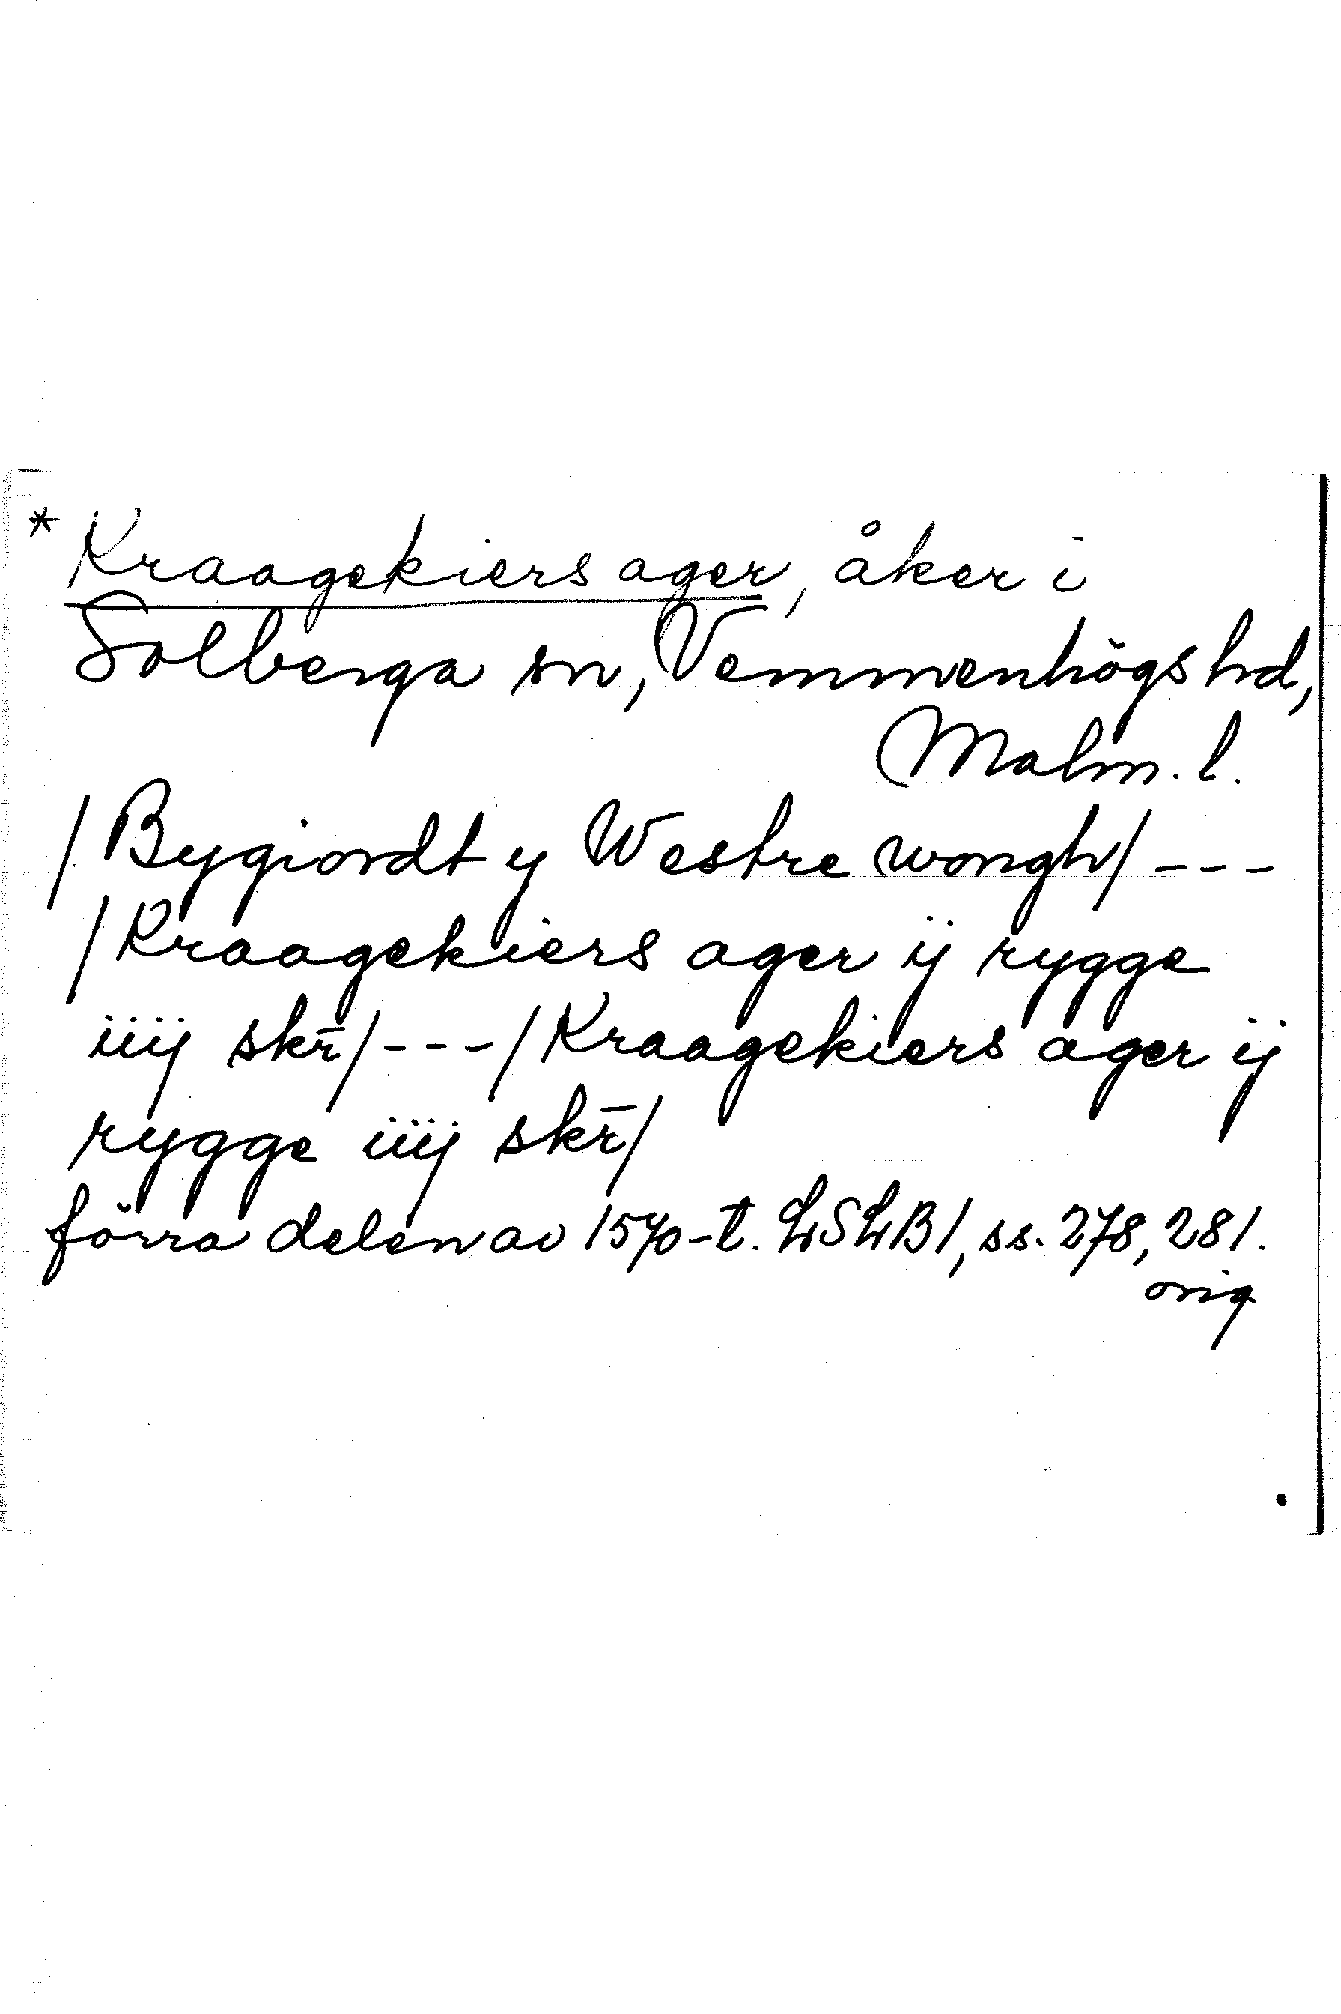 * Kraagekiers ager, åker i
Solberga sn, Vemmenhögs hd,
Malm. l.
/Bygiordt y Westre wongh/ ---
/Kraagekiers ager ij rygge
iiij skr̄/---/Kraagekiers ager ij
rygge iiij skr̄/
förra delen av 1570-t. LSLB1, ss. 278, 281.
orig